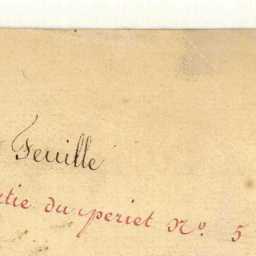 Feuille
rtie du periet Nº. 5